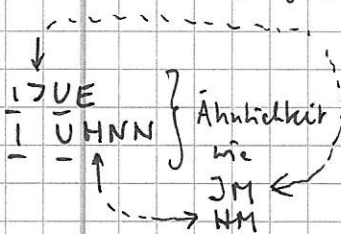 I > U E
I U HNN
Ähnlichkeit
wie
JM
HM